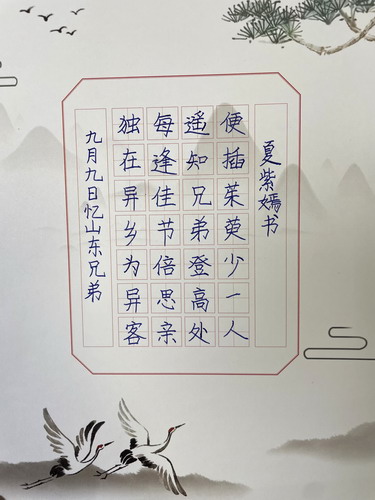 九月九日忆山东兄弟
独在异乡为异客
每逢佳节倍思亲
遥知兄弟登高处
便插茱萸少一人
夏紫嫣书